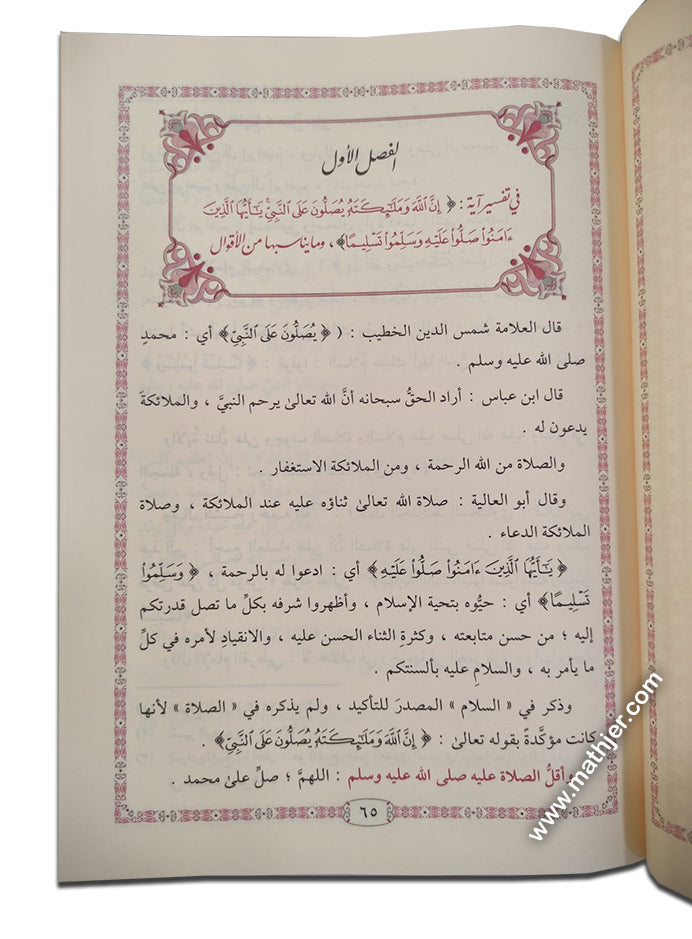 الفصل الأول
في تفسير آية : ﴿ إِنَّ ٱللَّهَ وَمَلَٰٓئِكَتَهُۥ يُصَلُّونَ عَلَى ٱلنَّبِيِّۚ يَٰٓأَيُّهَا ٱلَّذِينَ
ءَامَنُوا۟ صَلُّوا۟ عَلَيْهِ وَسَلِّمُوا۟ تَسْلِيمًا﴾ ، وما يناسبها من الأقوال
قال العلامة شمس الدين الخطيب : ( ﴿ يُصَلُّونَ عَلَى ٱلنَّبِيِّ﴾ أي : محمدٍ
صلى الله عليه وسلم .
قال ابن عباس : أراد الحقُّ سبحانه أنَّ الله تعالىٰ يرحم النبيَّ ، والملائكةَ
يدعون له .
والصلاة من الله الرحمة ، ومن الملائكة الاستغفار .
وقال أبو العالية : صلاة الله تعالىٰ ثناؤه عليه عند الملائكة ، وصلاة
الملائكة الدعاء .
﴿ يَٰٓأَيُّهَا ٱلَّذِينَ ءَامَنُوا۟ صَلُّوا۟ عَلَيْهِ﴾ أي : ادعوا له بالرحمة ، ﴿ وَسَلِّمُوا۟
تَسْلِيمًا﴾ أي : حيُّوه بتحية الإسلام ، وأظهروا شرفه بكلِّ ما تصل قدرتكم
إليه ؛ من حسن متابعته ، وكثرةِ الثناء الحسن عليه ، والانقيادِ لأمره في كلِّ
ما يأمر به ، والسلامِ عليه بألسنتكم .
وذكر في « السلام » المصدرَ للتأكيد ، ولم يذكره في « الصلاة » لأنها
كانت مؤكَّدةً بقوله تعالىٰ : ﴿ إِنَّ ٱللَّهَ وَمَلَٰٓئِكَتَهُۥ يُصَلُّونَ عَلَى ٱلنَّبِيِّ﴾ .
وأقلُّ الصلاة عليه صلى الله عليه وسلم : اللهمَّ ؛ صلِّ علىٰ محمد .
٦٥
www.mathjer.com